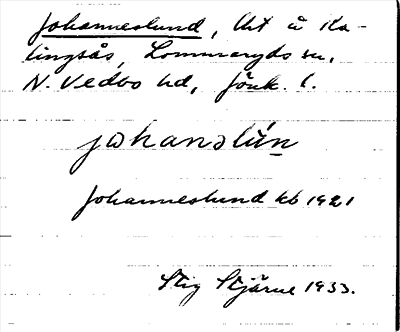 Johanneslund, Lht å Ka-
lingsås, Lommaryds sn,
N. Vedbo hd, Jönk. l.
johanəlún
Johanneslund kb 1921
Stig Stjärne 1933.